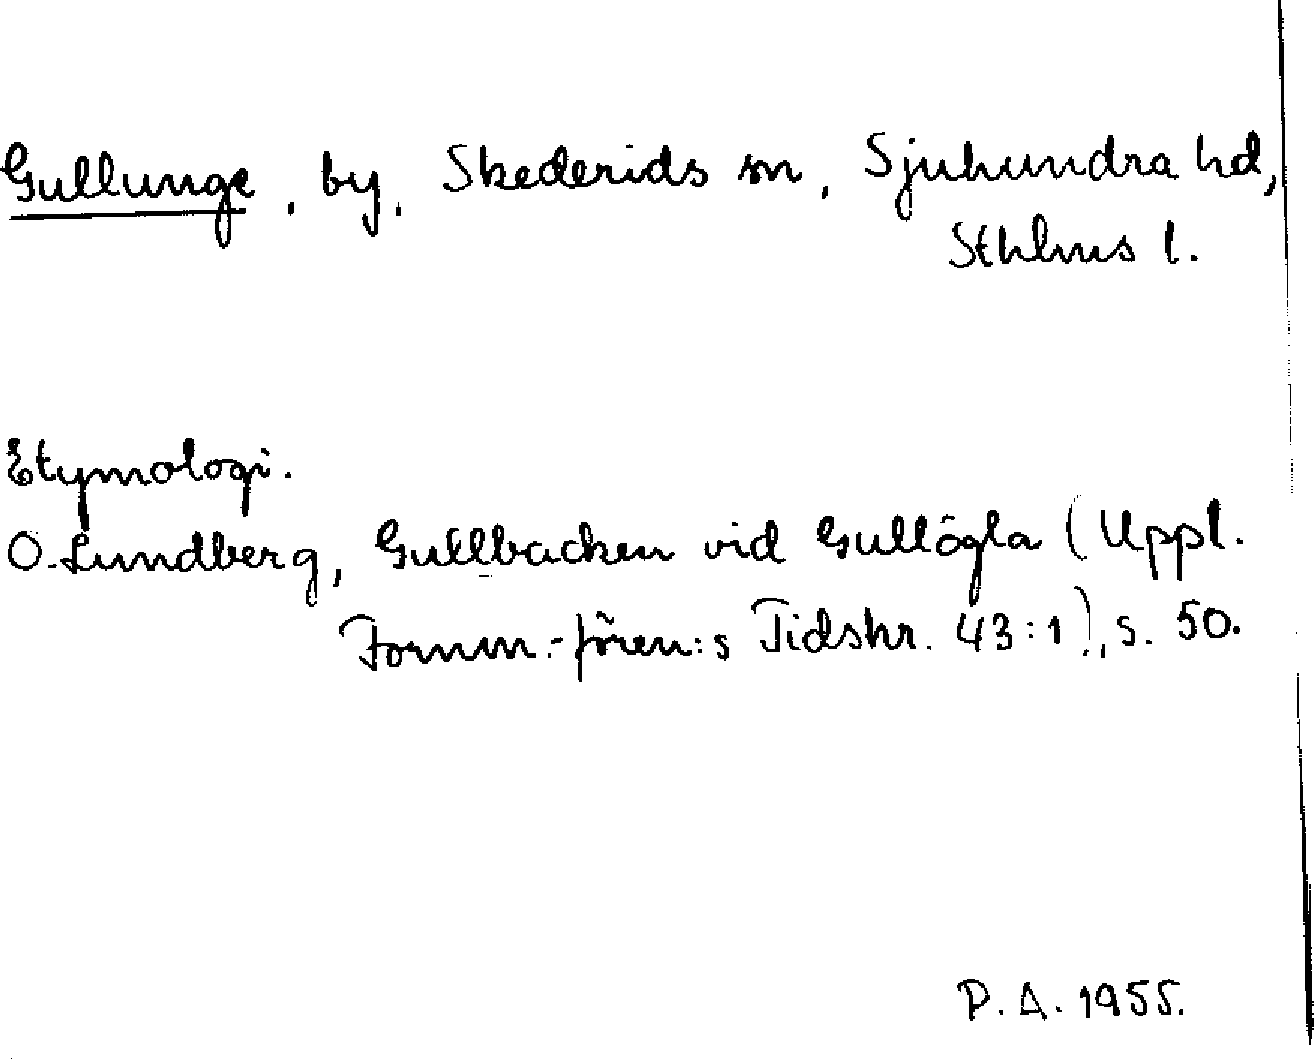 Gullunge, by, Skederids sn, Sjuhundra hd,
Sthlms l.
Etymologi.
O. Lundberg, Gullbacken vid Gullögla (Uppl.
Fornm.-fören:s Tidskr. 43:1), s. 50.
P. A. 1955.